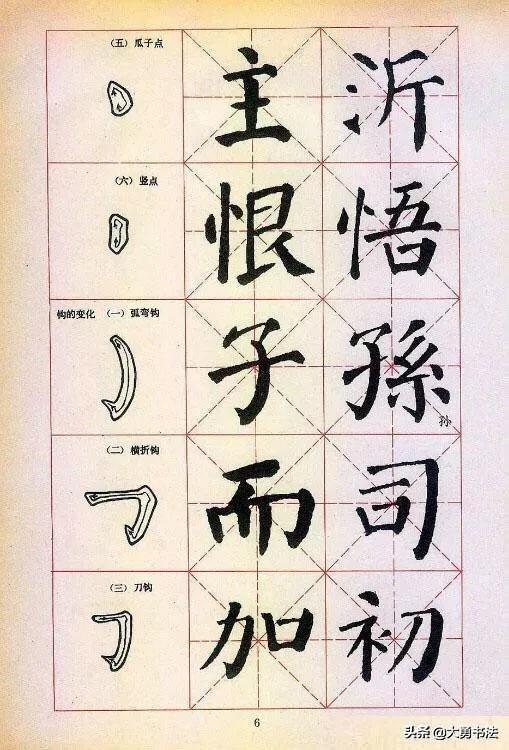 （五）瓜子点
主 沂
（六）竖点
恨 悟
钩的变化 （一）弧弯钩
子 孫
孙
（二）横折钩
而 司
（三）刀钩
加 初
6
头条 @大勇书法